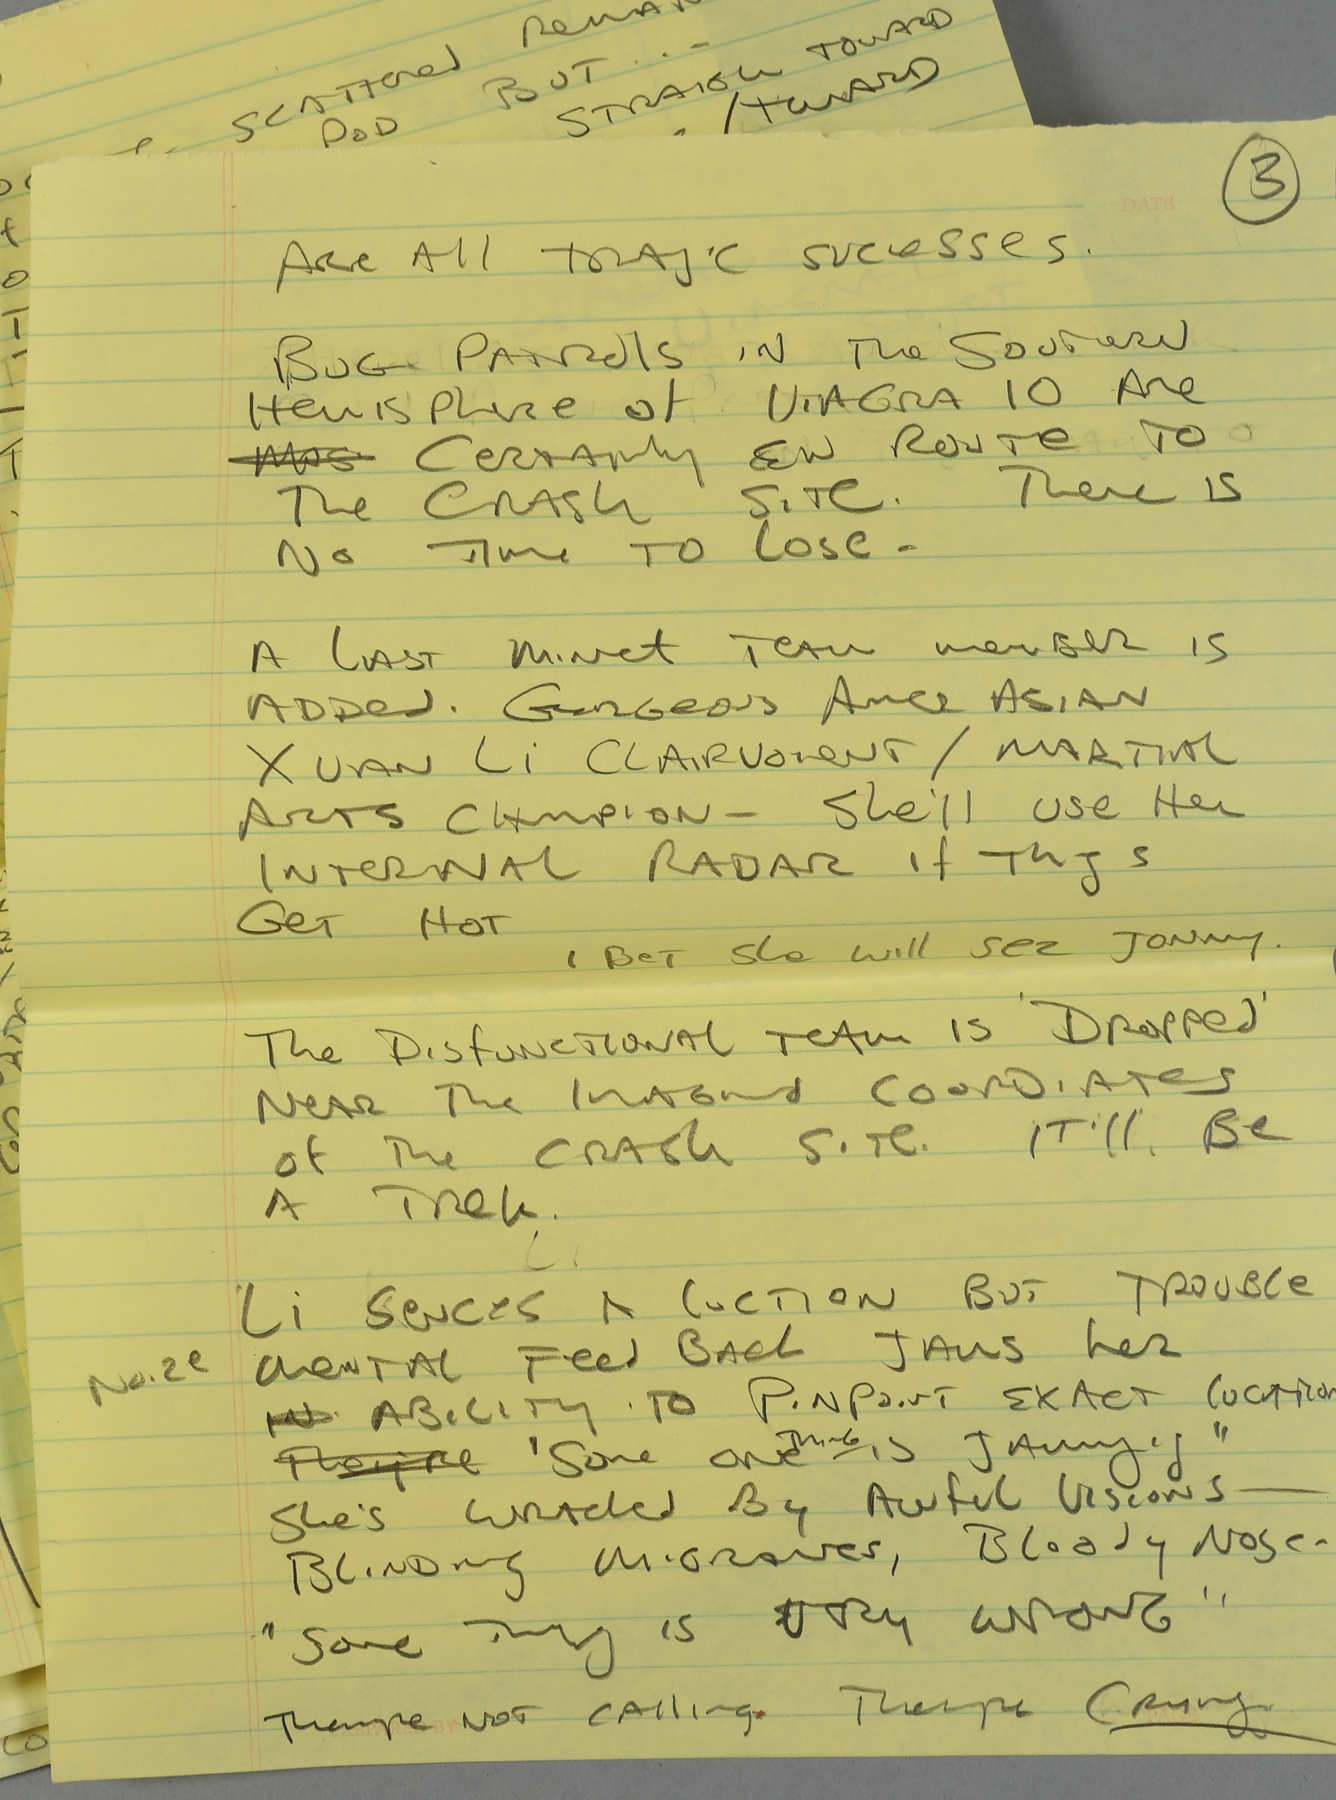 SCATTERED REMAN
POD BUT...
STRAIGH TOWARD
/TOWARD
3
DATE
ARE All TRAJ'C SUCCESSES.
BUG PATROLS IN The SOUTHERN
HEMISPHERE of VIAGRA 10 ARE
CERTAINLY EN ROUTE TO
The CRASH SITE. There IS
NO TIME TO LOSE-
A LAST MINUET TEAM MEMBER IS
ADDED. GORGEOUS AMER ASIAN
XUAN Li CLAIRVOIENT / MARTIAL
ARTS CHAMPION- She'll USE Her
INTERNAL RADAR If THIGS
GET HOT
I BET She will SEE JONNY.
The DISFUNCTIONAL TEAM IS 'DROPPED'
NEAR The IMAGIND COORDINATES
of The CRASH SITE. IT'll BE
A TREK.
Li
Li SENCES A LOCTION BUT TROUBLE
Noize MENTAL FEED BACK JAMS her
ABILITY TO PINPOINT EXACT LOCATION
They're 'SOME ONE THING IS JAMMING"
She's WRACKED By AWFUL VISIONS—
BLINDING MIGRAINES, BLOODY NOSE-
"SOME THING IS VERY WRONG"
They're NOT CALLING. They're CRYING